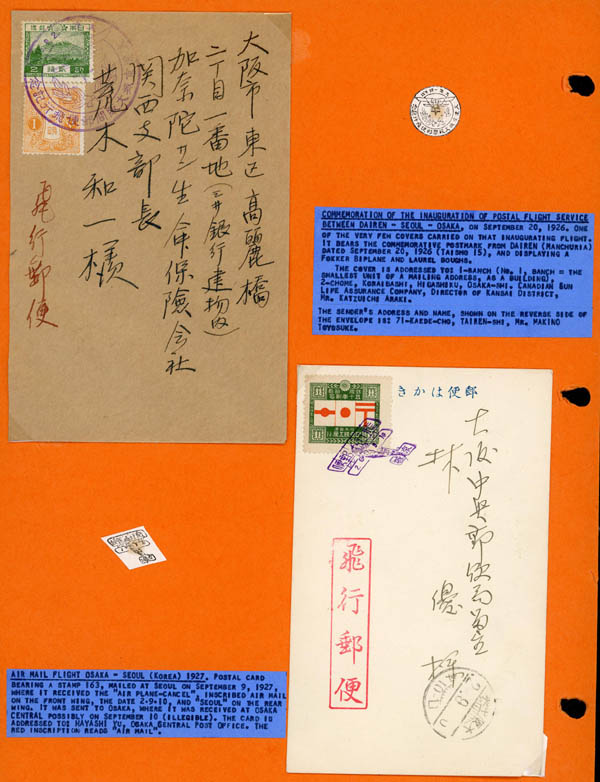 大阪市東区高麗橋
二丁目一番地(三井銀行建物内)
加奈陀サン生命保險会社
関西支部長
荒木和一様
飛行郵便
COMMEMORATION OF THE INAUGURATION OF POSTAL FLIGHT SERVICE
BETWEEN DAIREN - SEOUL - OSAKA, ON SEPTEMBER 20, 1926. ONE
OF THE VERY FEW COVERS CARRIED ON THAT INAUGURATING FLIGHT.
IT BEARS THE COMMEMORATIVE POSTMARK FROM DAIREN (MANCHURIA)
DATED SEPTEMBER 20, 1926 (TAISHO 15), AND DISPLAYING A
FOKKER BIPLANE AND LAUREL BOUGHS.
THE COVER IS ADDRESSED TO: 1-BANCH (NO. 1, BANCH = THE
SMALLEST UNIT OF A MAILING ADDRESS, AS A BUILDING)
2-CHOME, KORAIBASHI, HIGASHIKU, OSAKA-SHI. CANADIAN SUN
LIFE ASSURANCE COMPANY, DIRECTOR OF KANSAI DISTRICT,
MR. KATZUICHI ARAKI.
THE SENDER'S ADDRESS AND NAME, SHOWN ON THE REVERSE SIDE OF
THE ENVELOPE IS: 71-KAEDE-CHO, TAIREN-SHI, MR. MAKINO
TOYOSUKE.
郵便はかき
大阪中央郵便局
林 優 様
飛行郵便
AIR MAIL FLIGHT OSAKA - SEOUL (KOREA) 1927. POSTAL CARD
BEARING A STAMP 163, MAILED AT SEOUL ON SEPTEMBER 9, 1927,
WHERE IT RECEIVED THE "AIR PLANE-CANCEL", INSCRIBED AIR MAIL
ON THE FRONT WING, THE DATE 2-9-10, AND "SEOUL" ON THE REAR
WING. IT WAS SENT TO OSAKA, WHERE IT WAS RECEIVED AT OSAKA
CENTRAL POSSIBLY ON SEPTEMBER 10 (ILLEGIBLE). THE CARD IS
ADDRESSED TO: HAYASHI YU, OSAKA CENTRAL POST OFFICE. THE
RED INSCRIPTION READS "AIR MAIL".